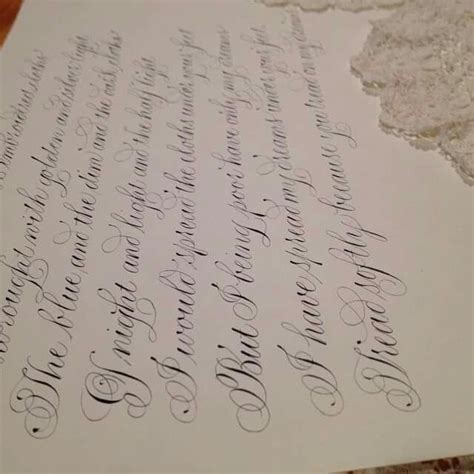 embroidered cloths
wrought with golden and silver light
The blue and the dim and the dark cloths
Of night and light and the half light
I would spread the cloths under your feet
But I being poor have only my dreams
I have spread my dreams under your feet
Tread softly because you tread on my dreams